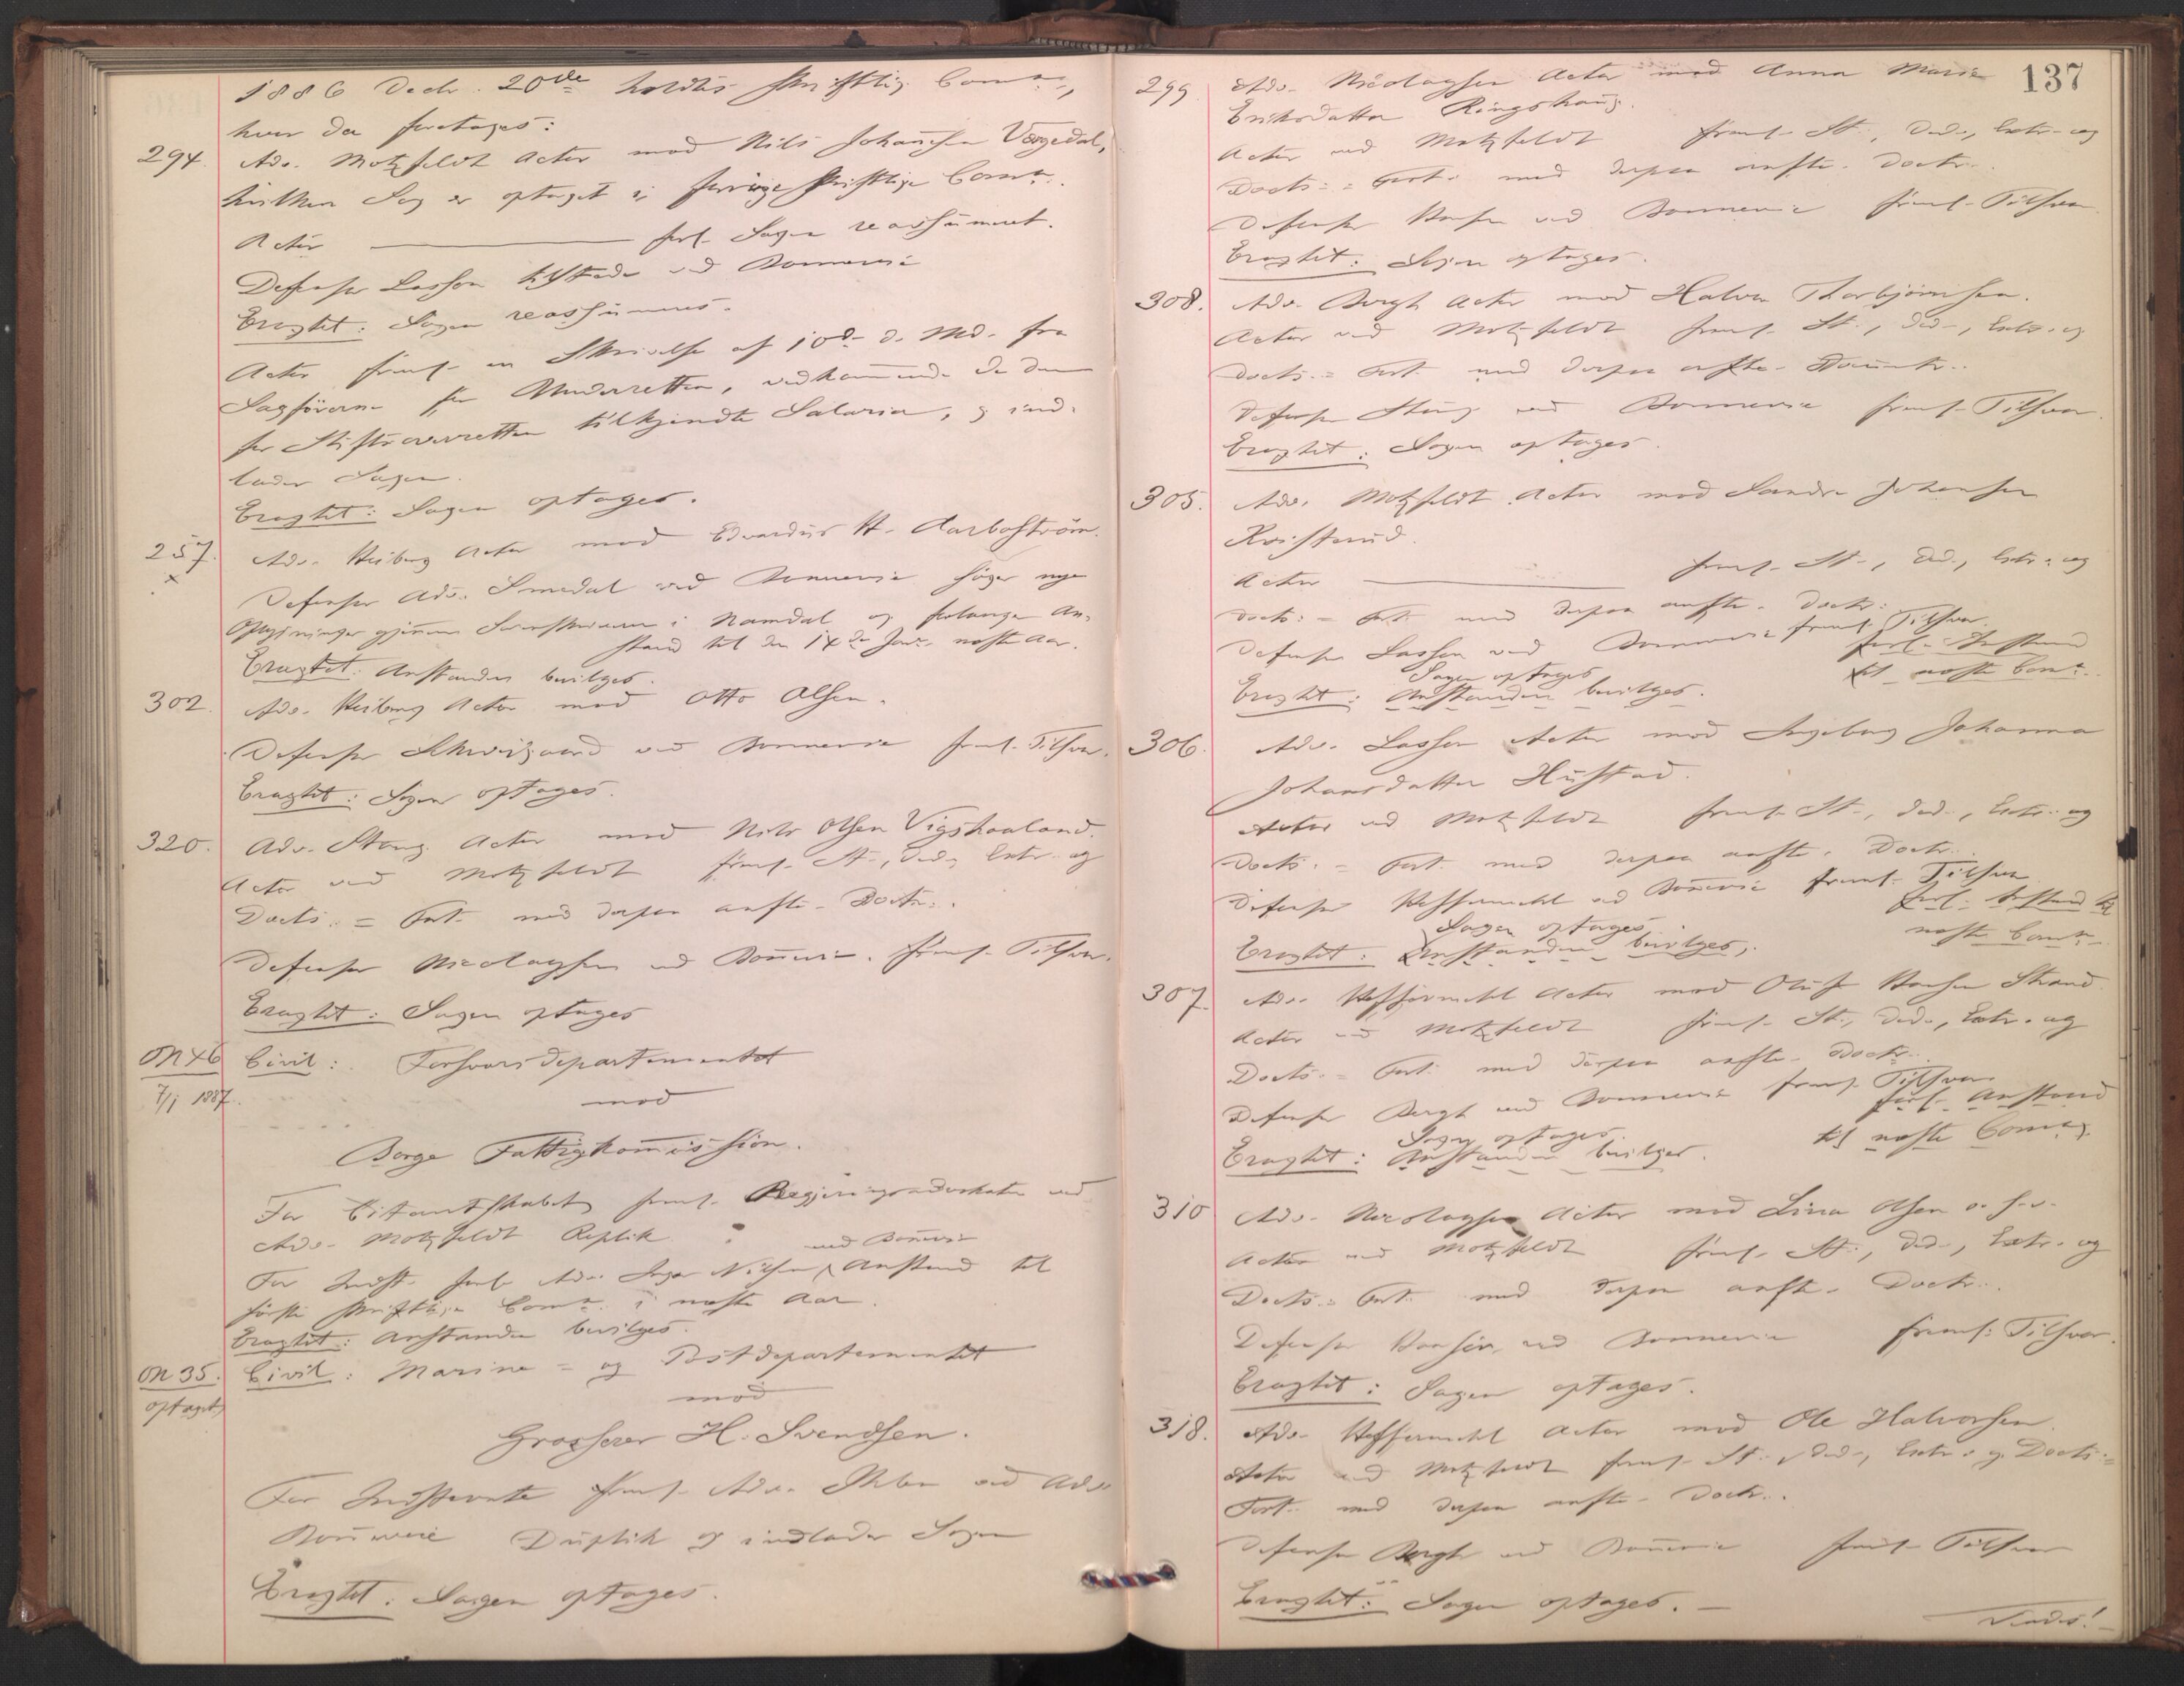 1886 Decbr. 20de holdtes skriftlig Comn.,
hvor da foretoges:
294. Adv. Motzfeldt Actor mod Nils Johansen Vægedal,
hvilken Sag er optaget i forrige skriftlige Comn.
Actor ——— forl. Sagen reassumeret.
Defensor Lasson tilstede ved Bonnevie
Eragtet: Sagen reassumeres.
Actor freml. en Skrivelse af 10de d. Md. fra
Sagførerne for Underretten, vedkommende de dem
for Stiftsoverretten tilkjendte Salarier, og ind-
lader Sagen.
Eragtet: Sagen optages.
257. Adv. Heiberg Actor mod Edvardus H. Aarbostrøm.
x
Defensor Adv. Smedal ved Bonnevie søger nye
Oplysninger gjennem Sorenskriveren i Namdal og forlanger An-
stand til den 14de Janr. næste Aar.
Eragtet: Anstanden bevilges.
302. Adv. Heiberg Actor mod Otto Olsen.
Defensor Schweigaard ved Bonnevie freml. Tilsvar.
Eragtet: Sagen optages.
320. Adv. Stang Actor mod Nils Olsen Vigshaaland.
Actor ved Motzfeldt freml. St., Ded., Extr. og
Docts.= Fort. med derpaa anfte. Doctr.
Defensor Nicolaysen ved Bonnevie freml. Tilsvar.
Eragtet: Sagen optages
ON 46 Civil: Forsvarsdepartementet
7/1 1887.
mod
Borge Fattigkommission.
For Citantskabet freml. Regjeringsadvokaten ved
Adv. Motzfeldt Replik.
For Indst. forl. Adv. Inger Nilsen ved Bonnevie Anstand til
første skriftlige Comn. i næste Aar.
Eragtet: Anstanden bevilges.
ON 35. Civil: Marine- og Postdepartementet
optaget
mod
Grosserer H. Svendsen.
For Indstevnte freml. Adv. ved Adv.
Bonnevie Duplik og indlader Sagen
Eragtet: Sagen optages.
137
299 Adv. Nicolaysen Actor mod Anna Marie
Eriksdatter Ringshaug.
Actor ved Motzfeldt freml. St., Ded., Extr. og
Docts.= Fort. med derpaa anfte. Doctr.
Defensor Hansen ved Bonnevie freml. Tilsvar
Eragtet: Sagen optages.
308. Adv. Bergh Actor mod Halvor Thorbjørnsen.
Actor ved Motzfeldt freml. St., Ded., Extr. og
Docts.= Fort. med derpaa anfte. Doctr.
Defensor Stang ved Bonnevie freml. Tilsvar.
Eragtet: Sagen optages.
305. Adv. Motzfeldt Actor mod Sandre Johansen
Kvisterud.
Actor ——— freml. St., Ded., Extr. og
Docts.= Fort. med derpaa anfte. Doctr.
Defensor Lasson ved Bonnevie freml. Tilsvar.
forl. Anstand
til næste Comn.
Sagen optages
Eragtet: Anstanden bevilges.
306. Adv. Lasson Actor mod Ingeborg Johanna
Johansdatter Hustad.
Actor ved Motzfeldt freml. St., Ded., Extr. og
Docts.= Fort. med derpaa anfte. Doctr.
Defensor Hesselmann ved Bonnevie freml. Tilsvar
forl. Anstand til
næste Comn.
Sagen optages
Eragtet: Anstanden bevilges.
307. Adv. Actor mod Oluf Hansen Strand
Actor ved Motzfeldt freml. St., Ded., Extr. og
Docts.= Fort. med derpaa anfte. Doctr.
Defensor Bergh ved Bonnevie freml. Tilsvar
forl. Anstand
til næste Comn.
Sagen optages.
Eragtet: Anstanden bevilges.
310 Adv. Nicolaysen Actor mod Lina Olsen o.s.v.
Actor ved Motzfeldt freml. St., Ded., Extr. og
Docts.= Fort. med derpaa anfte. Doctr.
Defensor Hansen ved Bonnevie freml. Tilsvar.
Eragtet: Sagen optages.
318. Adv. Actor mod Ole Halvorsen.
Actor ved Motzfeldt freml. St., Ded., Extr. og Docts.=
Fort. med derpaa anfte. Doctr.
Defensor Bergh ved Bonnevie freml. Tilsvar
Eragtet: Sagen optages. —
Vendes!